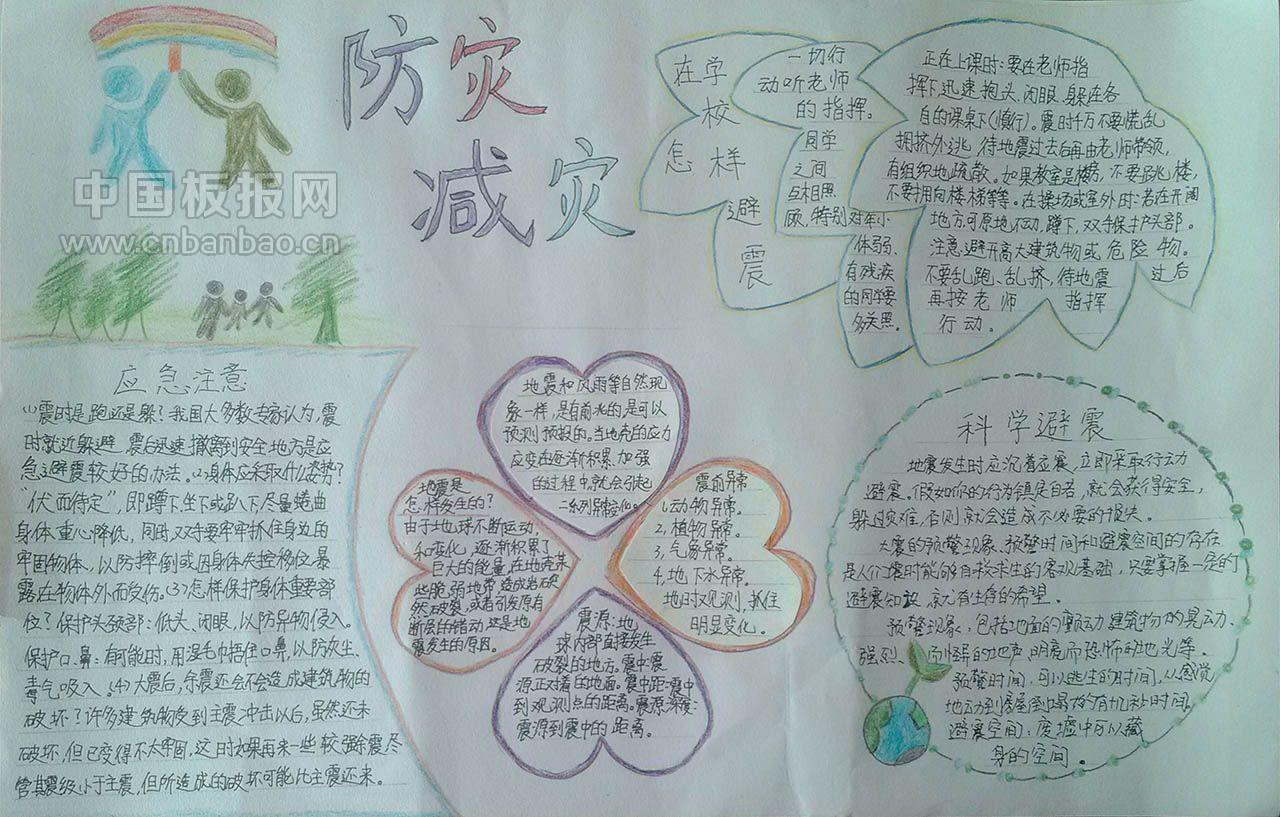 防灾
减灾
中国板报网
www.cnbanbao.cn
在学
校
怎样
避
震
一切行
动听老师
的指挥。
同学
之间
互相照
顾,特别对年小
体弱、
有残疾
的同学要
多关照。
正在上课时:要在老师指
挥下迅速抱头、闭眼、躲在各
自的课桌下(慎行)。震时千万不要慌乱
拥挤外逃,待地震过去后再由老师带领,
有组织地疏散。如果教室是楼房,不要跳楼,
不要拥向楼梯等等。在操场或室外时:若在开阔
地方可原地不动,蹲下,双手保护头部。
注意避开高大建筑物或危险物。
不要乱跑、乱挤,待地震过后
再按老师指挥
行动。
应急注意
(1)震时是跑还是躲?我国大多数专家认为,震
时就近躲避,震后迅速撤离到安全地方是应
急避震较好的办法。(2)身体应采取什么姿势?
“伏而待定”,即蹲下坐下或趴下尽量蜷曲
身体重心降低,同时双手要牢牢抓住身边的
牢固物体,以防摔倒或因身体失控移位,暴
露在物体外而受伤。(3)怎样保护身体重要部
位?保护头颈部:低头、闭眼,以防异物侵入。
保护口、鼻:有可能时,用湿毛巾捂住口鼻,以防灰尘、
毒气吸入。(4)大震后,余震还会不会造成建筑物的
破坏?许多建筑物受到主震冲击以后,虽然还未
破坏,但已变得不太牢固,这时如果再来一些较强余震,尽
管其震级小于主震,但所造成的破坏可能比主震还来。
地震和风雨等自然现
象一样,是有前兆的是可以
预测预报的。当地壳的应力
应变在逐渐积累、加强
的过程中,就会引起
一系列异常变化。
地震是
怎样发生的?
由于地球不断运动
和变化,逐渐积累了
巨大的能量,在地壳某
些脆弱地带,造成岩石破
然破裂,或者引发原有
断层的错动,这是地
震发生的原因。
震前异常
1.动物异常。
2,植物异常。
3,气象异常。
4.地下水异常.
地时观测,抓住
明显变化。
震源:地
球内部直接发生
破裂的地方。震中:震
源正对着的地面。震中距:震中
到观测点的距离。震源深度:
震源到震中的距离。
科学避震
地震发生时应沉着应震,立即采取行动
避震。假如你的行为镇定自若,就会获得安全,
躲过灾难,否则就会造成不必要的损失。
大震的预警现象、预警时间和避震空间的存在
是人们震时能够自救求生的客观基础,只要掌握一定的
避震知识,就有生存的希望。
预警现象,包括地面的颤动、建筑物的晃动、
强烈、而怪异的地声、明亮而恐怖的地光等。
预警时间,可以逃生的时间,从感觉
地动到房屋倒塌约有几秒时间。
避震空间:废墟中可以藏
身的空间。